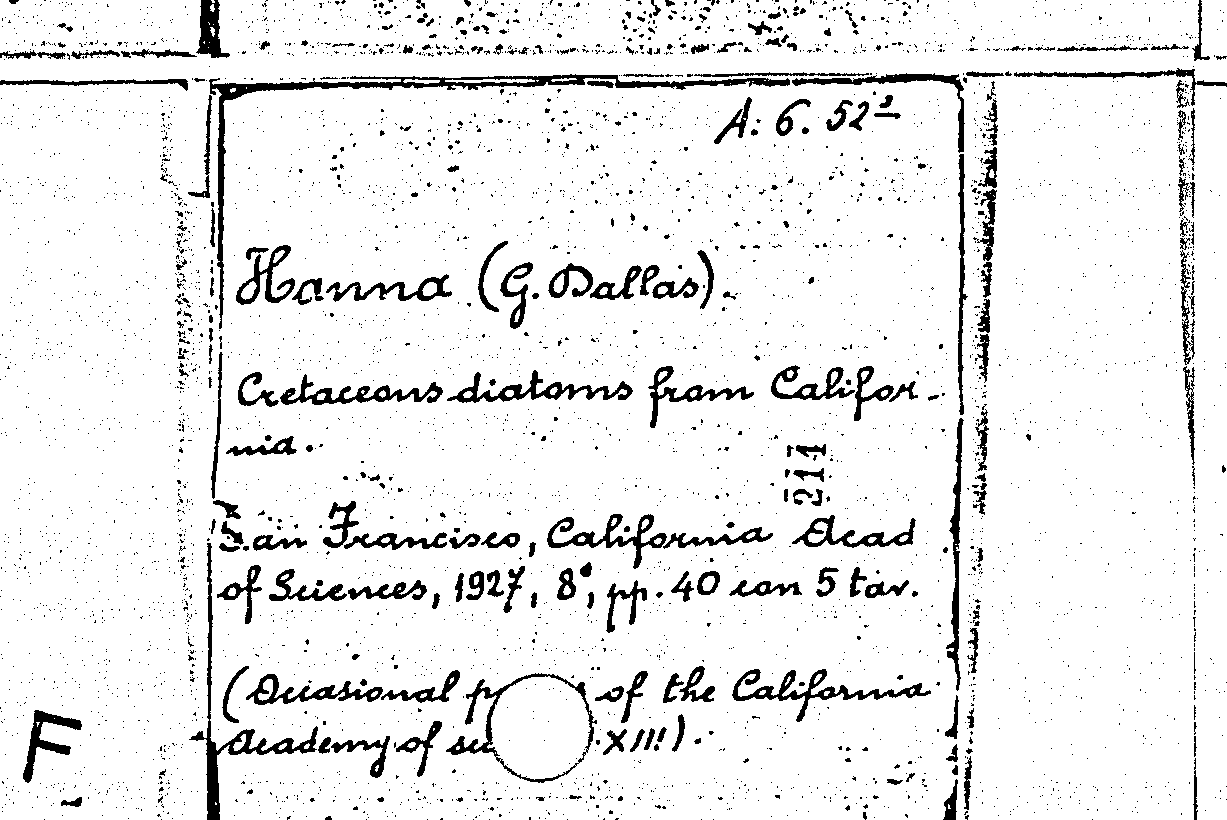 A. 6. 52²
Hanna (G. Dallas).
Cretaceous diatoms from Califor-
nia.
211
San Francisco, California Acad
of Sciences, 1927, 8°, pp. 40 con 5 tav.
(Occasional p of the California
Academy of sc XIII).
F